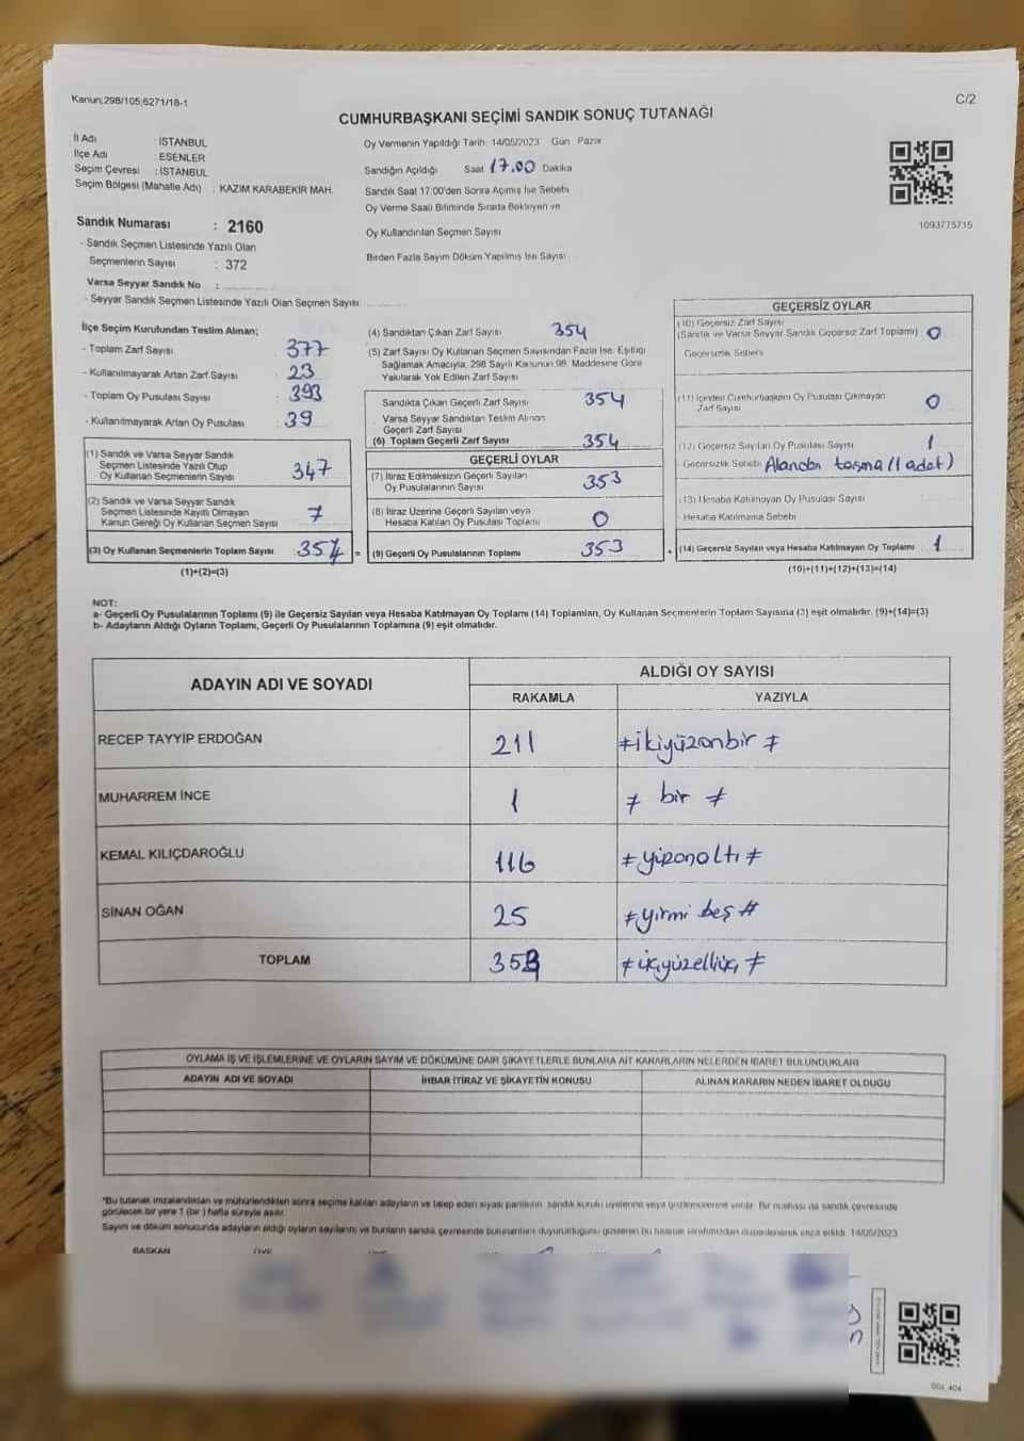 Kanun;298/105;6271/18-1
C/2
CUMHURBAŞKANI SEÇİMİ SANDIK SONUÇ TUTANAĞI
İl Adı : İSTANBUL
İlçe Adı : ESENLER
Seçim Çevresi : İSTANBUL
Seçim Bölgesi (Mahalle Adı) : KAZIM KARABEKİR MAH.
Oy Vermenin Yapıldığı Tarih 14/05/2023 Gün Pazar
Sandığın Açıldığı Saat 17.00 Dakika
Sandık Saat 17:00'den Sonra Açımış İse Sebebi
Oy Verme Saati Bitiminde Sırada Bekleyen ve
Oy Kullandırılan Seçmen Sayısı
Birden Fazla Sayım Döküm Yapılmış İse Sayısı
1093775715
Sandık Numarası : 2160
- Sandık Seçmen Listesinde Yazılı Olan
Seçmenlerin Sayısı : 372
Varsa Seyyar Sandık No :
- Seyyar Sandık Seçmen Listesinde Yazılı Olan Seçmen Sayısı
İlçe Seçim Kurulundan Teslim Alınan;
- Toplam Zarf Sayısı 377
- Kullanılmayarak Artan Zarf Sayısı 23
- Toplam Oy Pusulası Sayısı 393
- Kullanılmayarak Artan Oy Pusulası 39
(1) Sandık ve Varsa Seyyar Sandık
Seçmen Listesinde Yazılı Olup
Oy Kullanan Seçmenlerin Sayısı 347
(2) Sandık ve Varsa Seyyar Sandık
Seçmen Listesinde Kayıtlı Olmayan
Kanun Gereği Oy Kullanan Seçmen Sayısı 7
(3) Oy Kullanan Seçmenlerin Toplam Sayısı 354 =
(1)+(2)=(3)
(4) Sandıktan Çıkan Zarf Sayısı 354
(5) Zarf Sayısı Oy Kullanan Seçmen Sayısından Fazla İse, Eşitliği
Sağlamak Amacıyla, 298 Sayılı Kanunun 98. Maddesine Göre
Yakılarak Yok Edilen Zarf Sayısı
Sandıkta Çıkan Geçerli Zarf Sayısı 354
Varsa Seyyar Sandıktan Teslim Alınan
Geçerli Zarf Sayısı
(6) Toplam Geçerli Zarf Sayısı 354
GEÇERLİ OYLAR
(7) İtiraz Edilmeksizin Geçerli Sayılan
Oy Pusulalarının Sayısı 353
(8) İtiraz Üzerine Geçerli Sayılan veya
Hesaba Katılan Oy Pusulası Toplamı 0
(9) Geçerli Oy Pusulalarının Toplamı 353 +
GEÇERSİZ OYLAR
(10) Geçersiz Zarf Sayısı
(Sandık ve Varsa Seyyar Sandık Geçersiz Zarf Toplamı) 0
Geçersizlik Sebebi
(11) İçinden Cumhurbaşkanı Oy Pusulası Çıkmayan
Zarf Sayısı 0
(12) Geçersiz Sayılan Oy Pusulası Sayısı 1
- Geçersizlik Sebebi Alandan taşma (1 adet)
(13) Hesaba Katılmayan Oy Pusulası Sayısı
- Hesaba Katılmama Sebebi
(14) Geçersiz Sayılan veya Hesaba Katılmayan Oy Toplamı 1
(10)+(11)+(12)+(13)=(14)
NOT:
a- Geçerli Oy Pusulalarının Toplamı (9) ile Geçersiz Sayılan veya Hesaba Katılmayan Oy Toplamı (14) Toplamları, Oy Kullanan Seçmenlerin Toplam Sayısına (3) eşit olmalıdır. (9)+(14)=(3)
b- Adayların Aldığı Oyların Toplamı, Geçerli Oy Pusulalarının Toplamına (9) eşit olmalıdır.
ADAYIN ADI VE SOYADI
ALDIĞI OY SAYISI
RAKAMLA YAZIYLA
RECEP TAYYİP ERDOĞAN 211 ≠ikiyüzonbir≠
MUHARREM İNCE 1 ≠ bir ≠
KEMAL KILIÇDAROĞLU 116 ≠yüzonaltı≠
SİNAN OĞAN 25 ≠yirmi beş#
TOPLAM 353 ≠üçyüzelliüç≠
OYLAMA İŞ VE İŞLEMLERİNE VE OYLARIN SAYIM VE DÖKÜMÜNE DAİR ŞİKAYETLERLE BUNLARA AİT KARARLARIN NELERDEN İBARET BULUNDUKLARI
ADAYIN ADI VE SOYADI İHBAR İTİRAZ VE ŞİKAYETİN KONUSU ALINAN KARARIN NEDEN İBARET OLDUĞU
*Bu tutanak imzalandıktan ve mühürlendikten sonra seçime katılan adayların ve talep eden siyasi partilerin sandık kurulu üyelerine veya gözlemcilerine verilir. Bir nüshası da sandık çevresinde
görülecek bir yere 1 (bir) hafta süreyle asılır.
Sayım ve döküm sonucunda adayların aldığı oyların sayılarını ve bunların sandık çevresinde bulunanlara duyurulduğunu gösteren bu tutanak tarafımızdan düzenlenerek imza edildi. 14/05/2023
BAŞKAN